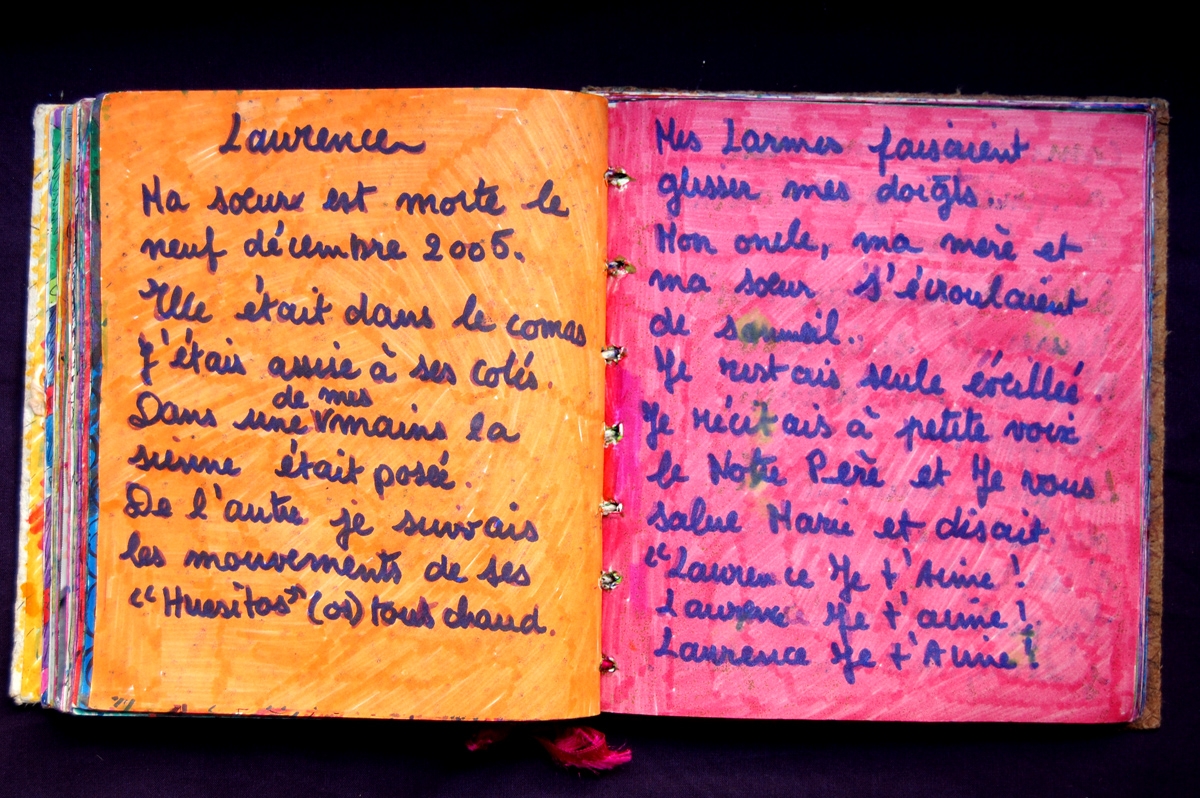 Laurence
Ma soeur est morte le
neuf décembre 2005.
Elle était dans le comas
J'étais assise à ses cotés.
de mes
Dans une V mains la
sienne était posée.
De l'autre je suivais
les mouvements de ses
"Huesitos" (os) tout chaud.
Mes Larmes faisaient
glisser mes doigts..
Mon oncle, ma mère et
ma soeur s'écroulaient
de sommeil..
Je restais seule éveillée.
Je récitais à petite voix
le Notre Père et Je vous
salue Marie et disait.
"Laurence Je t'Aime!
Laurence Je t'aime!
Laurence Je t'Aime!